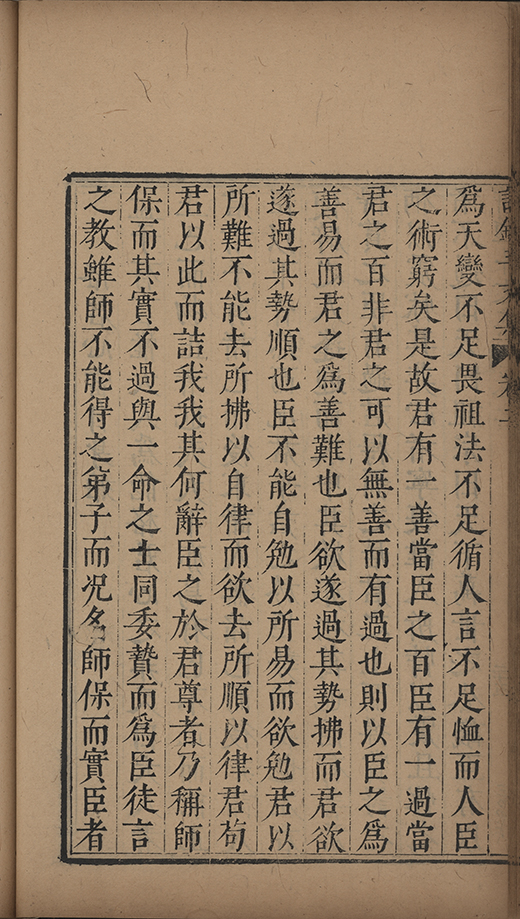 爲天變不足畏祖法不足循人言不足恤而人臣
之術窮矣是故君有一善當臣之百臣有一過當
君之百非君之可以無善而有過也則以臣之爲
善易而君之爲善難也臣欲遂過其勢拂而君欲
遂過其勢順也臣不能自勉以所易而欲勉君以
所難不能去所拂以自律而欲去所順以律君苟
君以此而詰我我其何辭臣之於君尊者乃稱師
保而其實不過與一命之士同委贄而爲臣徒言
之教雖師不能得之弟子而况名師保而實臣者